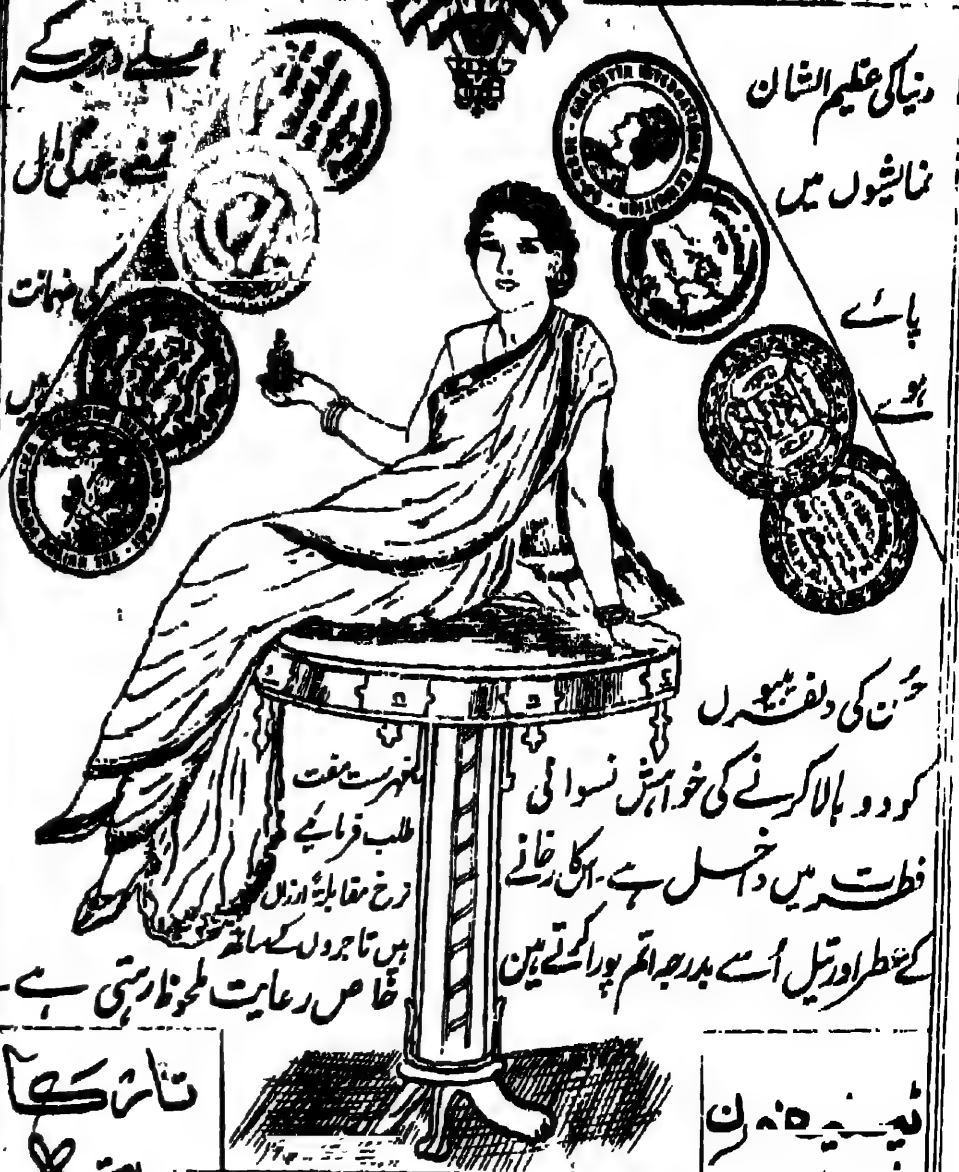 دنیا کی عظیم الشان
نمائشوں میں
پائے
ہوئے
اعلےٰ درجہ کے
تمغے عمدگی مال
کی ضمانت
ہیں
حسن کی دلفریبیوں
کو دو بالا کرنے کی خواہش نسوانی
فطرت میں داخل ہے۔ اس کارخانے
کے عطر اور تیل اُسے بدرجہ اتم پورا کرتے ہیں
فہرست مفت
طلب فرمائیے
نرخ مقابلۃً ارزاں
ہیں تاجروں کے ساتھ
خاص رعایت ملحوظ رہتی ہے۔
تار کا
ٹیلیفون